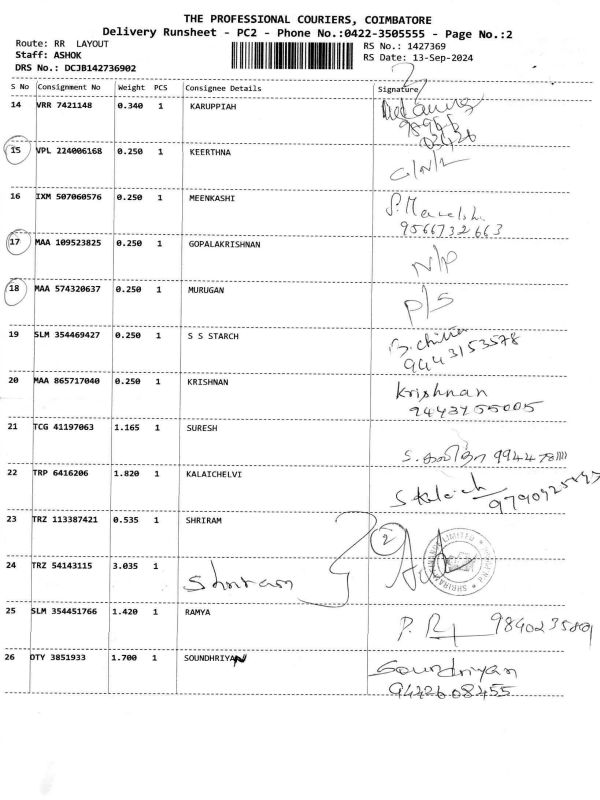 THE PROFESSIONAL COURIERS, COIMBATORE
Delivery Runsheet - PC2 - Phone No.:0422-3505555 - Page No.:2
Route: RR LAYOUT
Staff: ASHOK
DRS No.: DCJB142736902
RS No.: 1427369
RS Date: 13-Sep-2024
S No Consignment No Weight PCS Consignee Details Signature
14 VRR 7421148 0.340 1 KARUPPIAH
15 VPL 224006168 0.250 1 KEERTHNA
16 IXM 507060576 0.250 1 MEENKASHI
9566732663
17 MAA 109523825 0.250 1 GOPALAKRISHNAN N/P
18 MAA 574320637 0.250 1 MURUGAN P/S
19 SLM 354469427 0.250 1 S S STARCH
9443153578
20 MAA 865717040 0.250 1 KRISHNAN Krishnan
21 TCG 41197063 1.165 1 SURESH
22 TRP 6416206 1.820 1 KALAICHELVI
23 TRZ 113387421 0.535 1 SHRIRAM 2
24 TRZ 54143115 3.035 1 Shriram
25 SLM 354451766 1.420 1 RAMYA
26 OTY 3851933 1.700 1 SOUNDHRIYAN Soundriyan